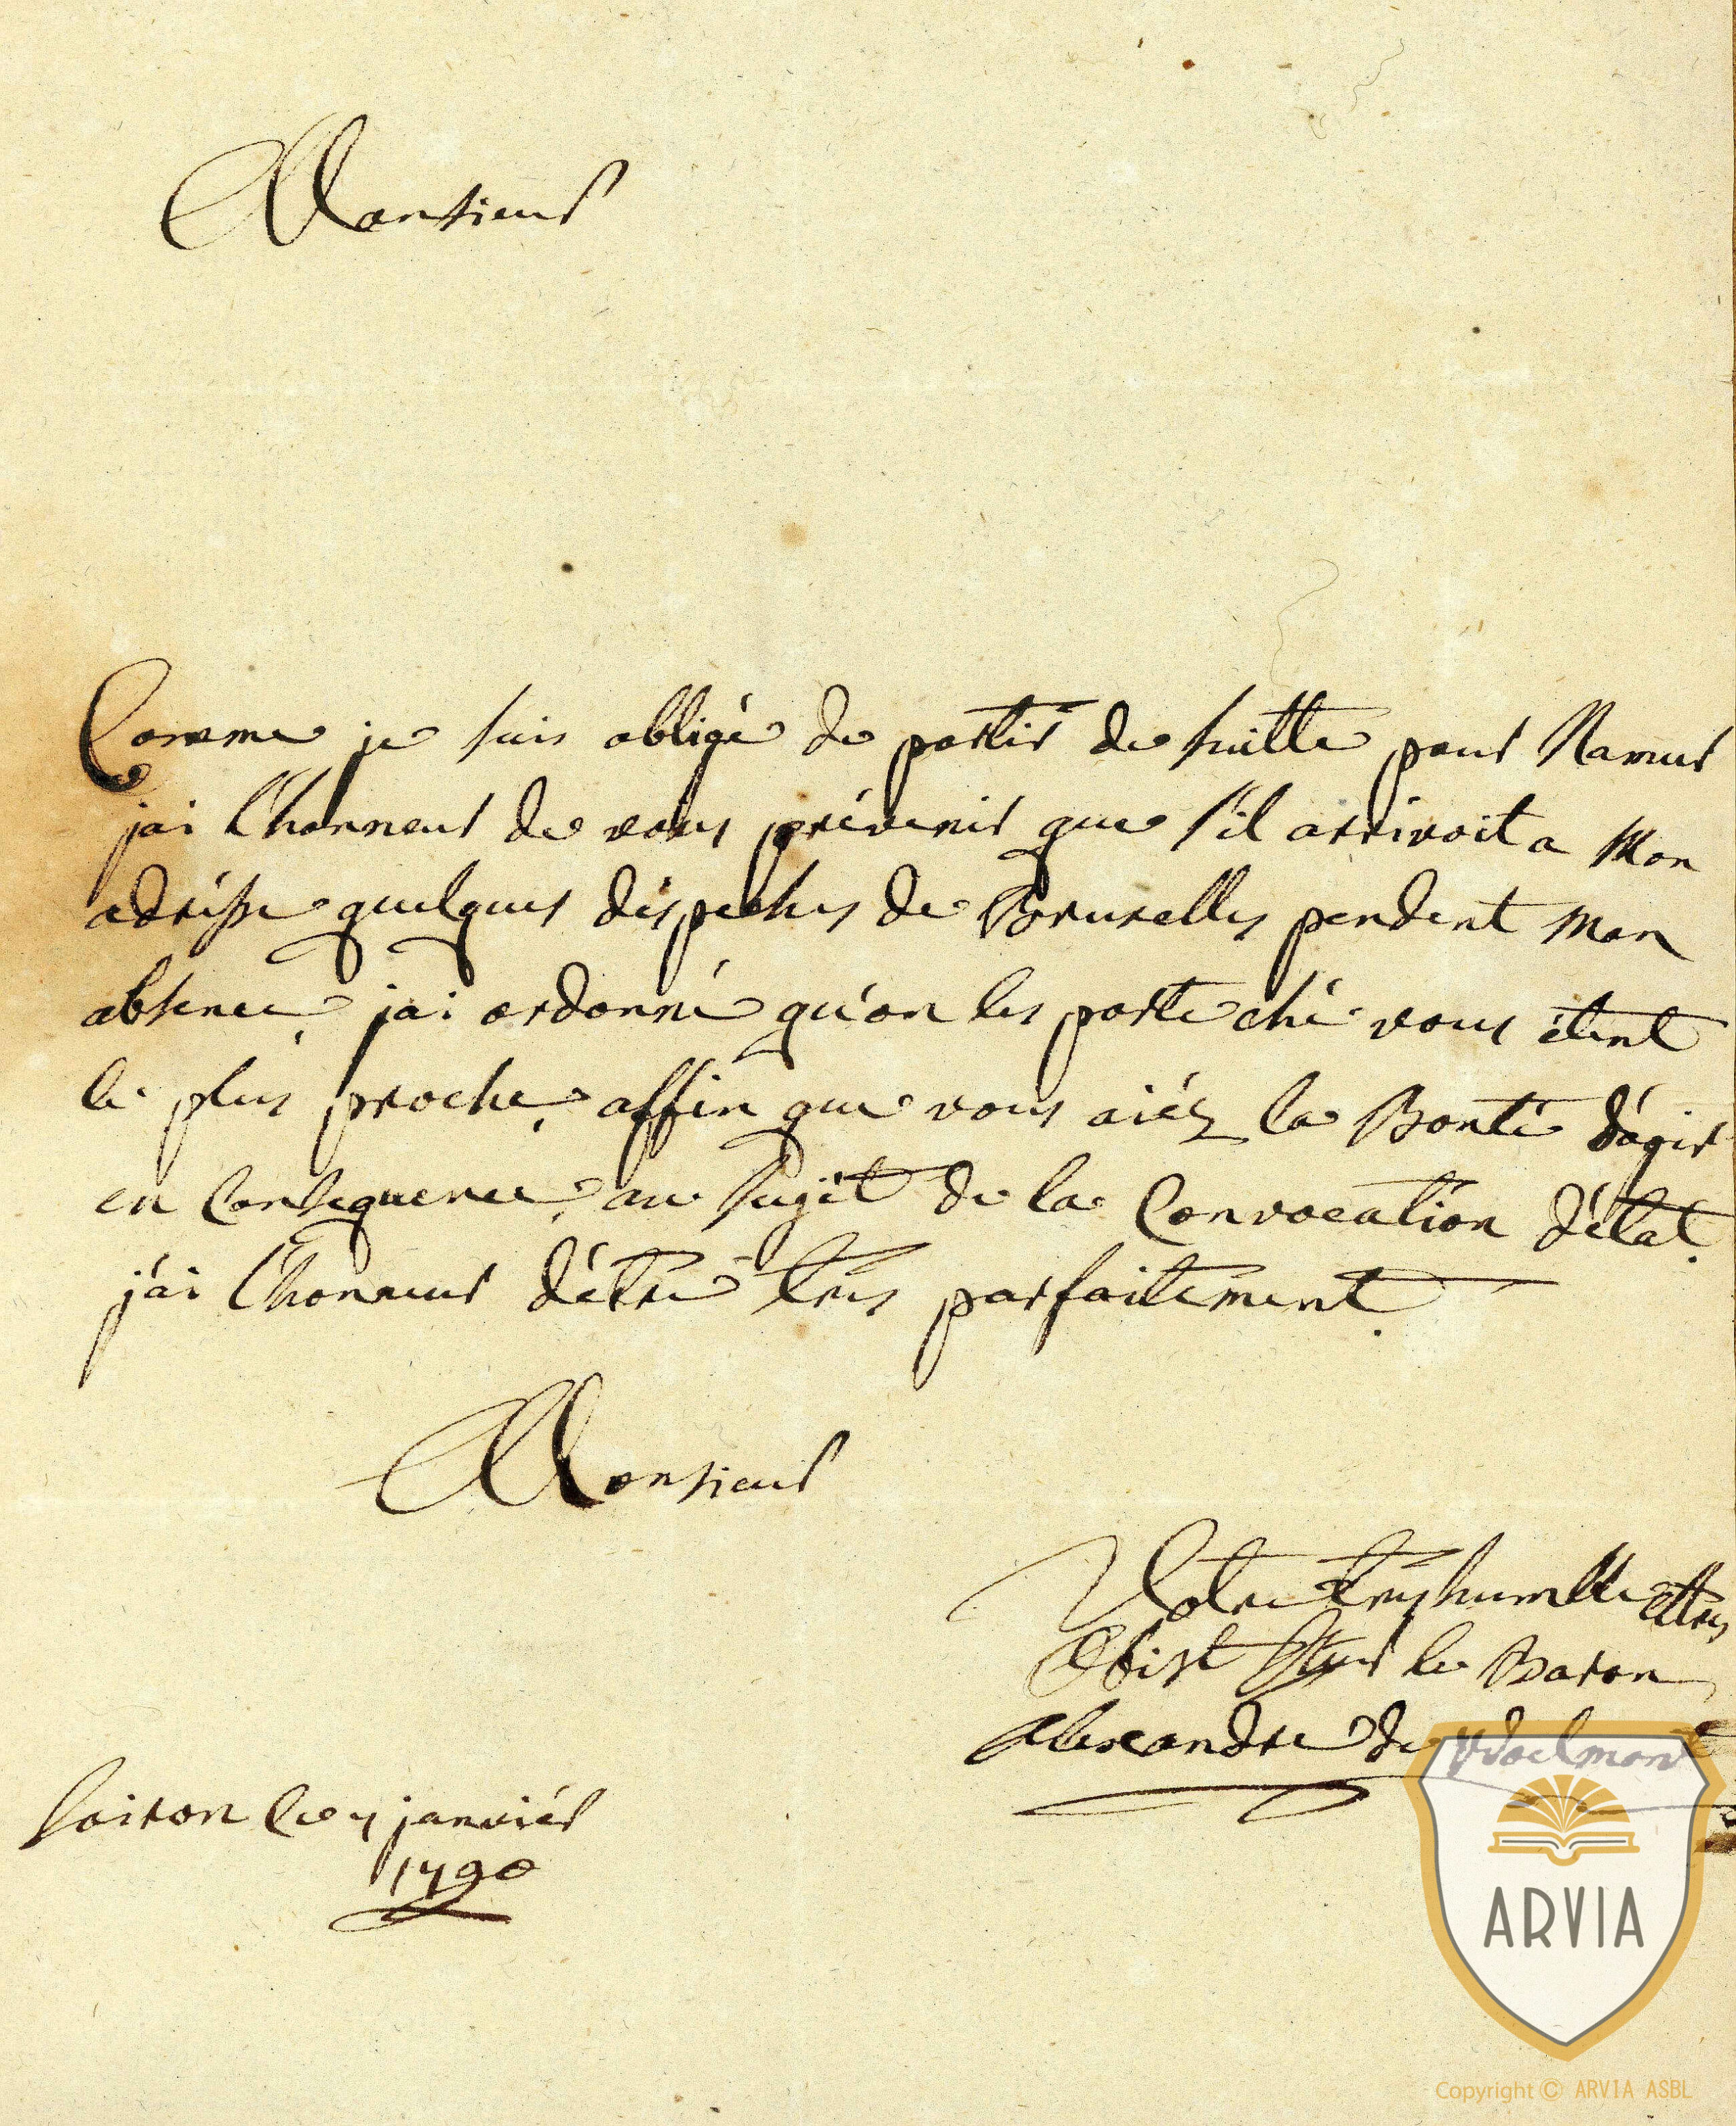 Monsieur
Comme je suis obligé de partir de suitte pour Namur
jai l'honneur de vous prévenir que s'il arrivoit a Mon
adrésse quelques déspeches de Bruxelles pendent Mon
absence, jai ordonné qu'on les porte ché vous étent
le plus proche, affin que vous aiéz la Bonté d'agir
en Consequence, au sujét de la Convocation d'état.
j'ai l'honneur d'étre trés parfaitement.
Monsieur
Votre tres humble et tres
Obist Steur le Baron
alexandre de Woelmont
soiron Le janviér
1790
ARVIA
Copyright © ARVIA ASBL